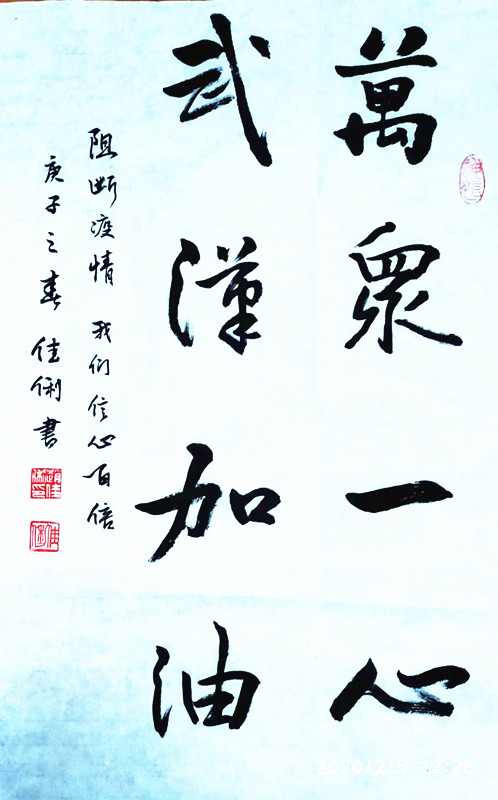 萬衆一心
武漢加油
阻断疫情 我们信心百倍
庚子之春 佳俐書
2020/2/5 12:28